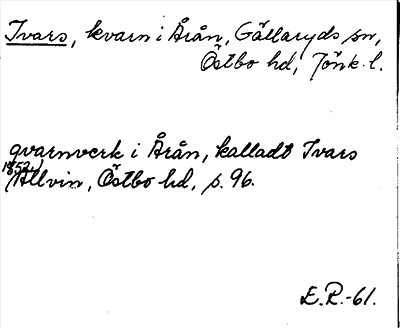 Ivars, kvarn i Årån, Gällaryds sn,
Östbo hd, Jönk. l.
qvarnverk i Årån, kalladt Ivars
1852
Allvin, Östbo hd, s. 96.
E.R.-61.